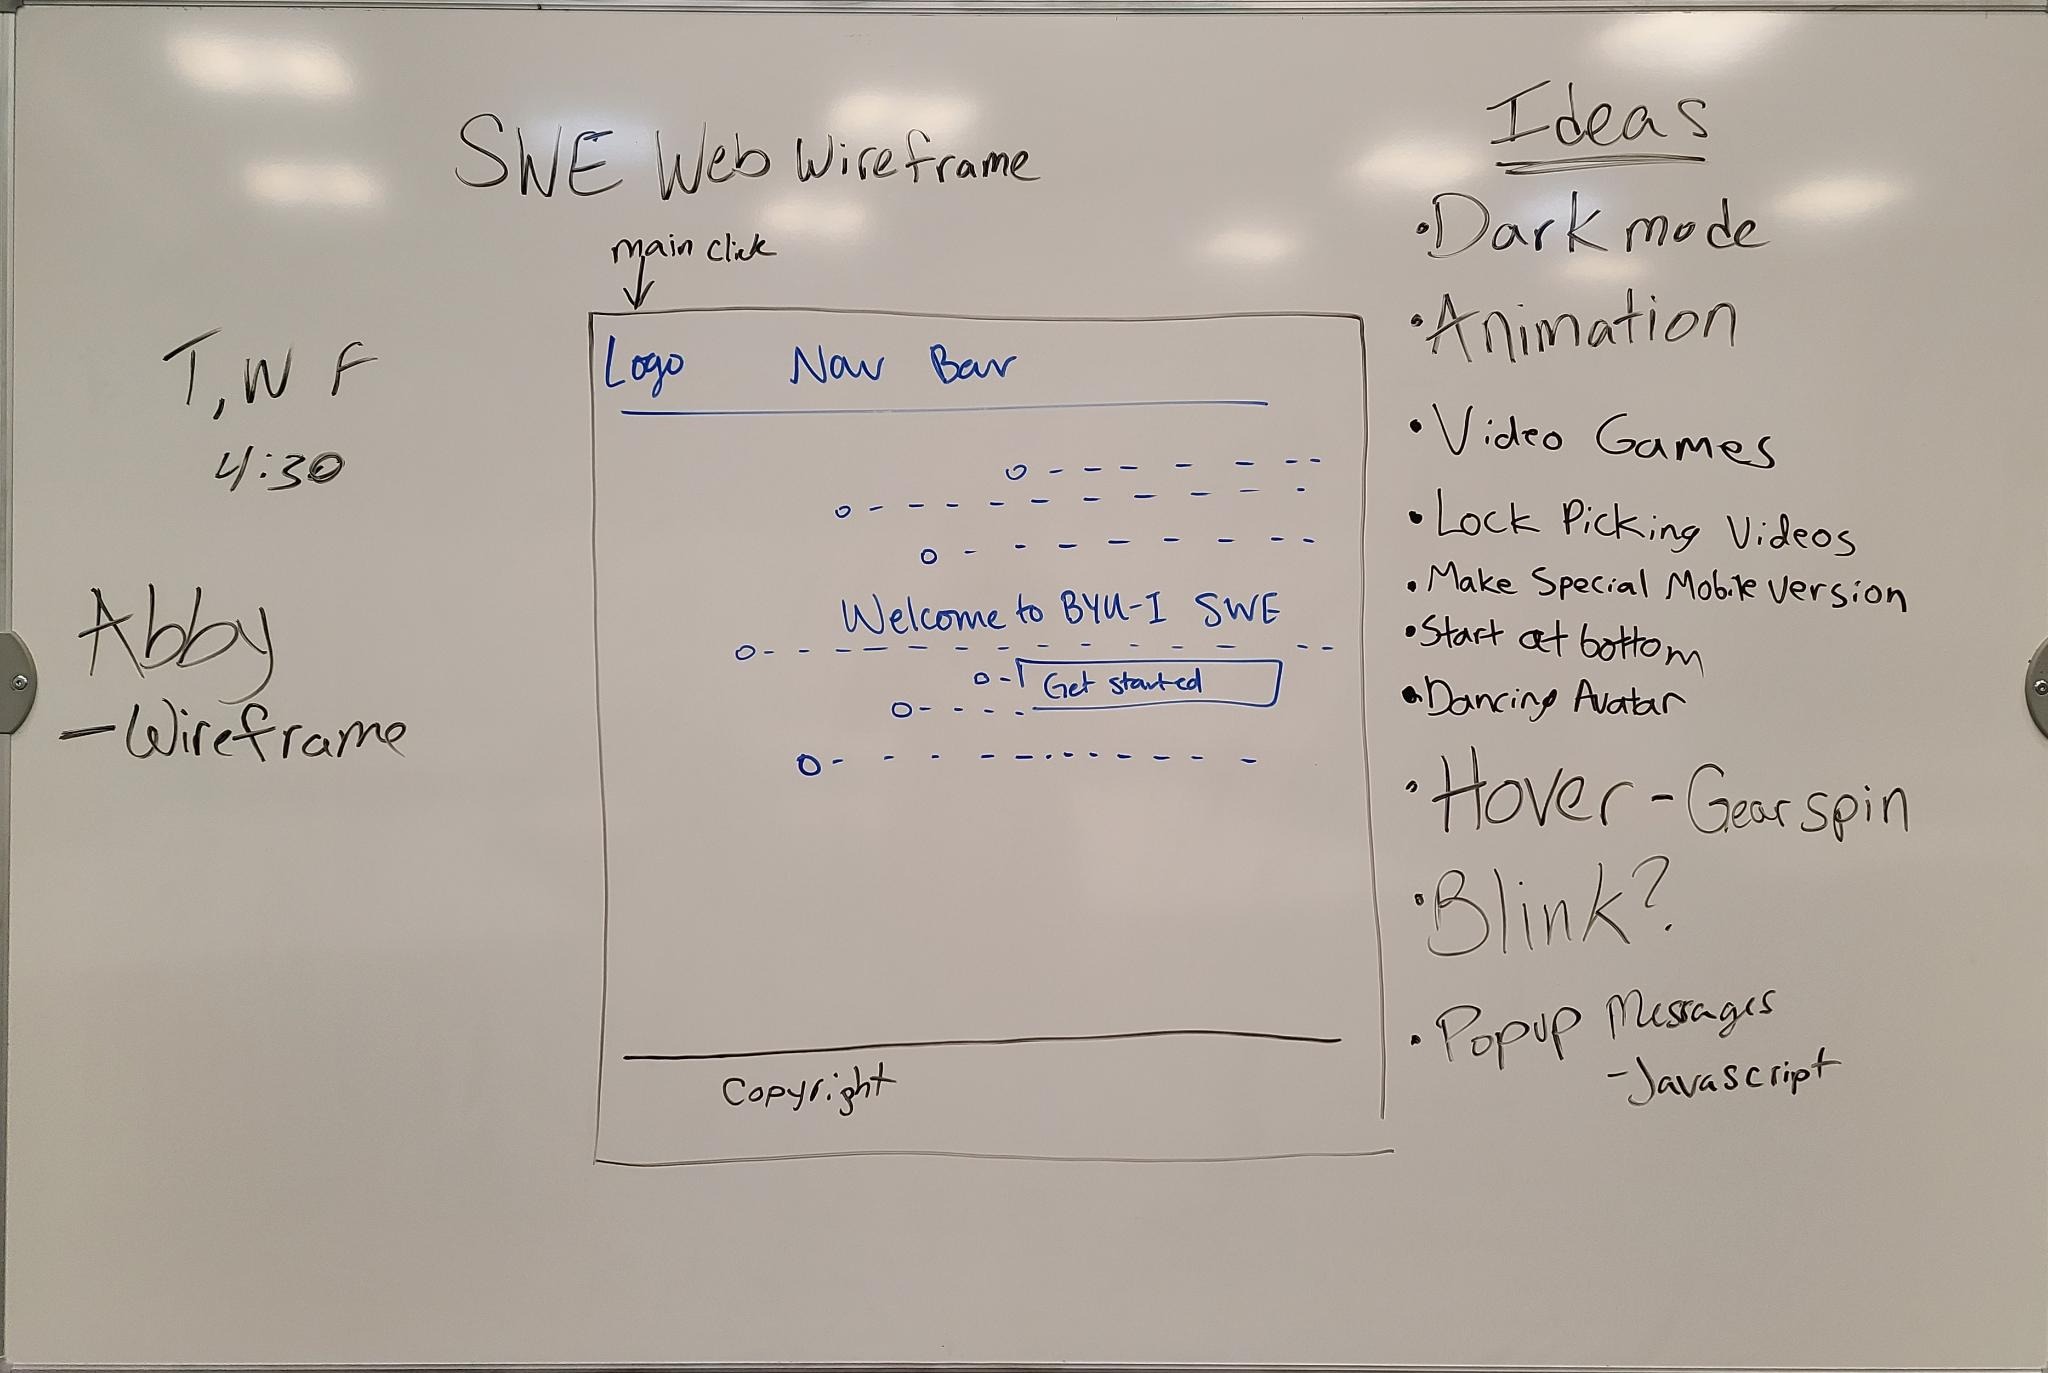 SWE Web Wireframe
main click
T, W F
4:30
Abby
- Wireframe
Logo Nav Bar
Welcome to BYU-I SWE
Get started
Copyright
Ideas
• Dark mode
• Animation
• Video Games
• Lock Picking Videos
• Make Special Mobile version
• Start at bottom
• Dancing Avatar
• Hover - Gear spin
• Blink?
• Popup Messages
- Javascript